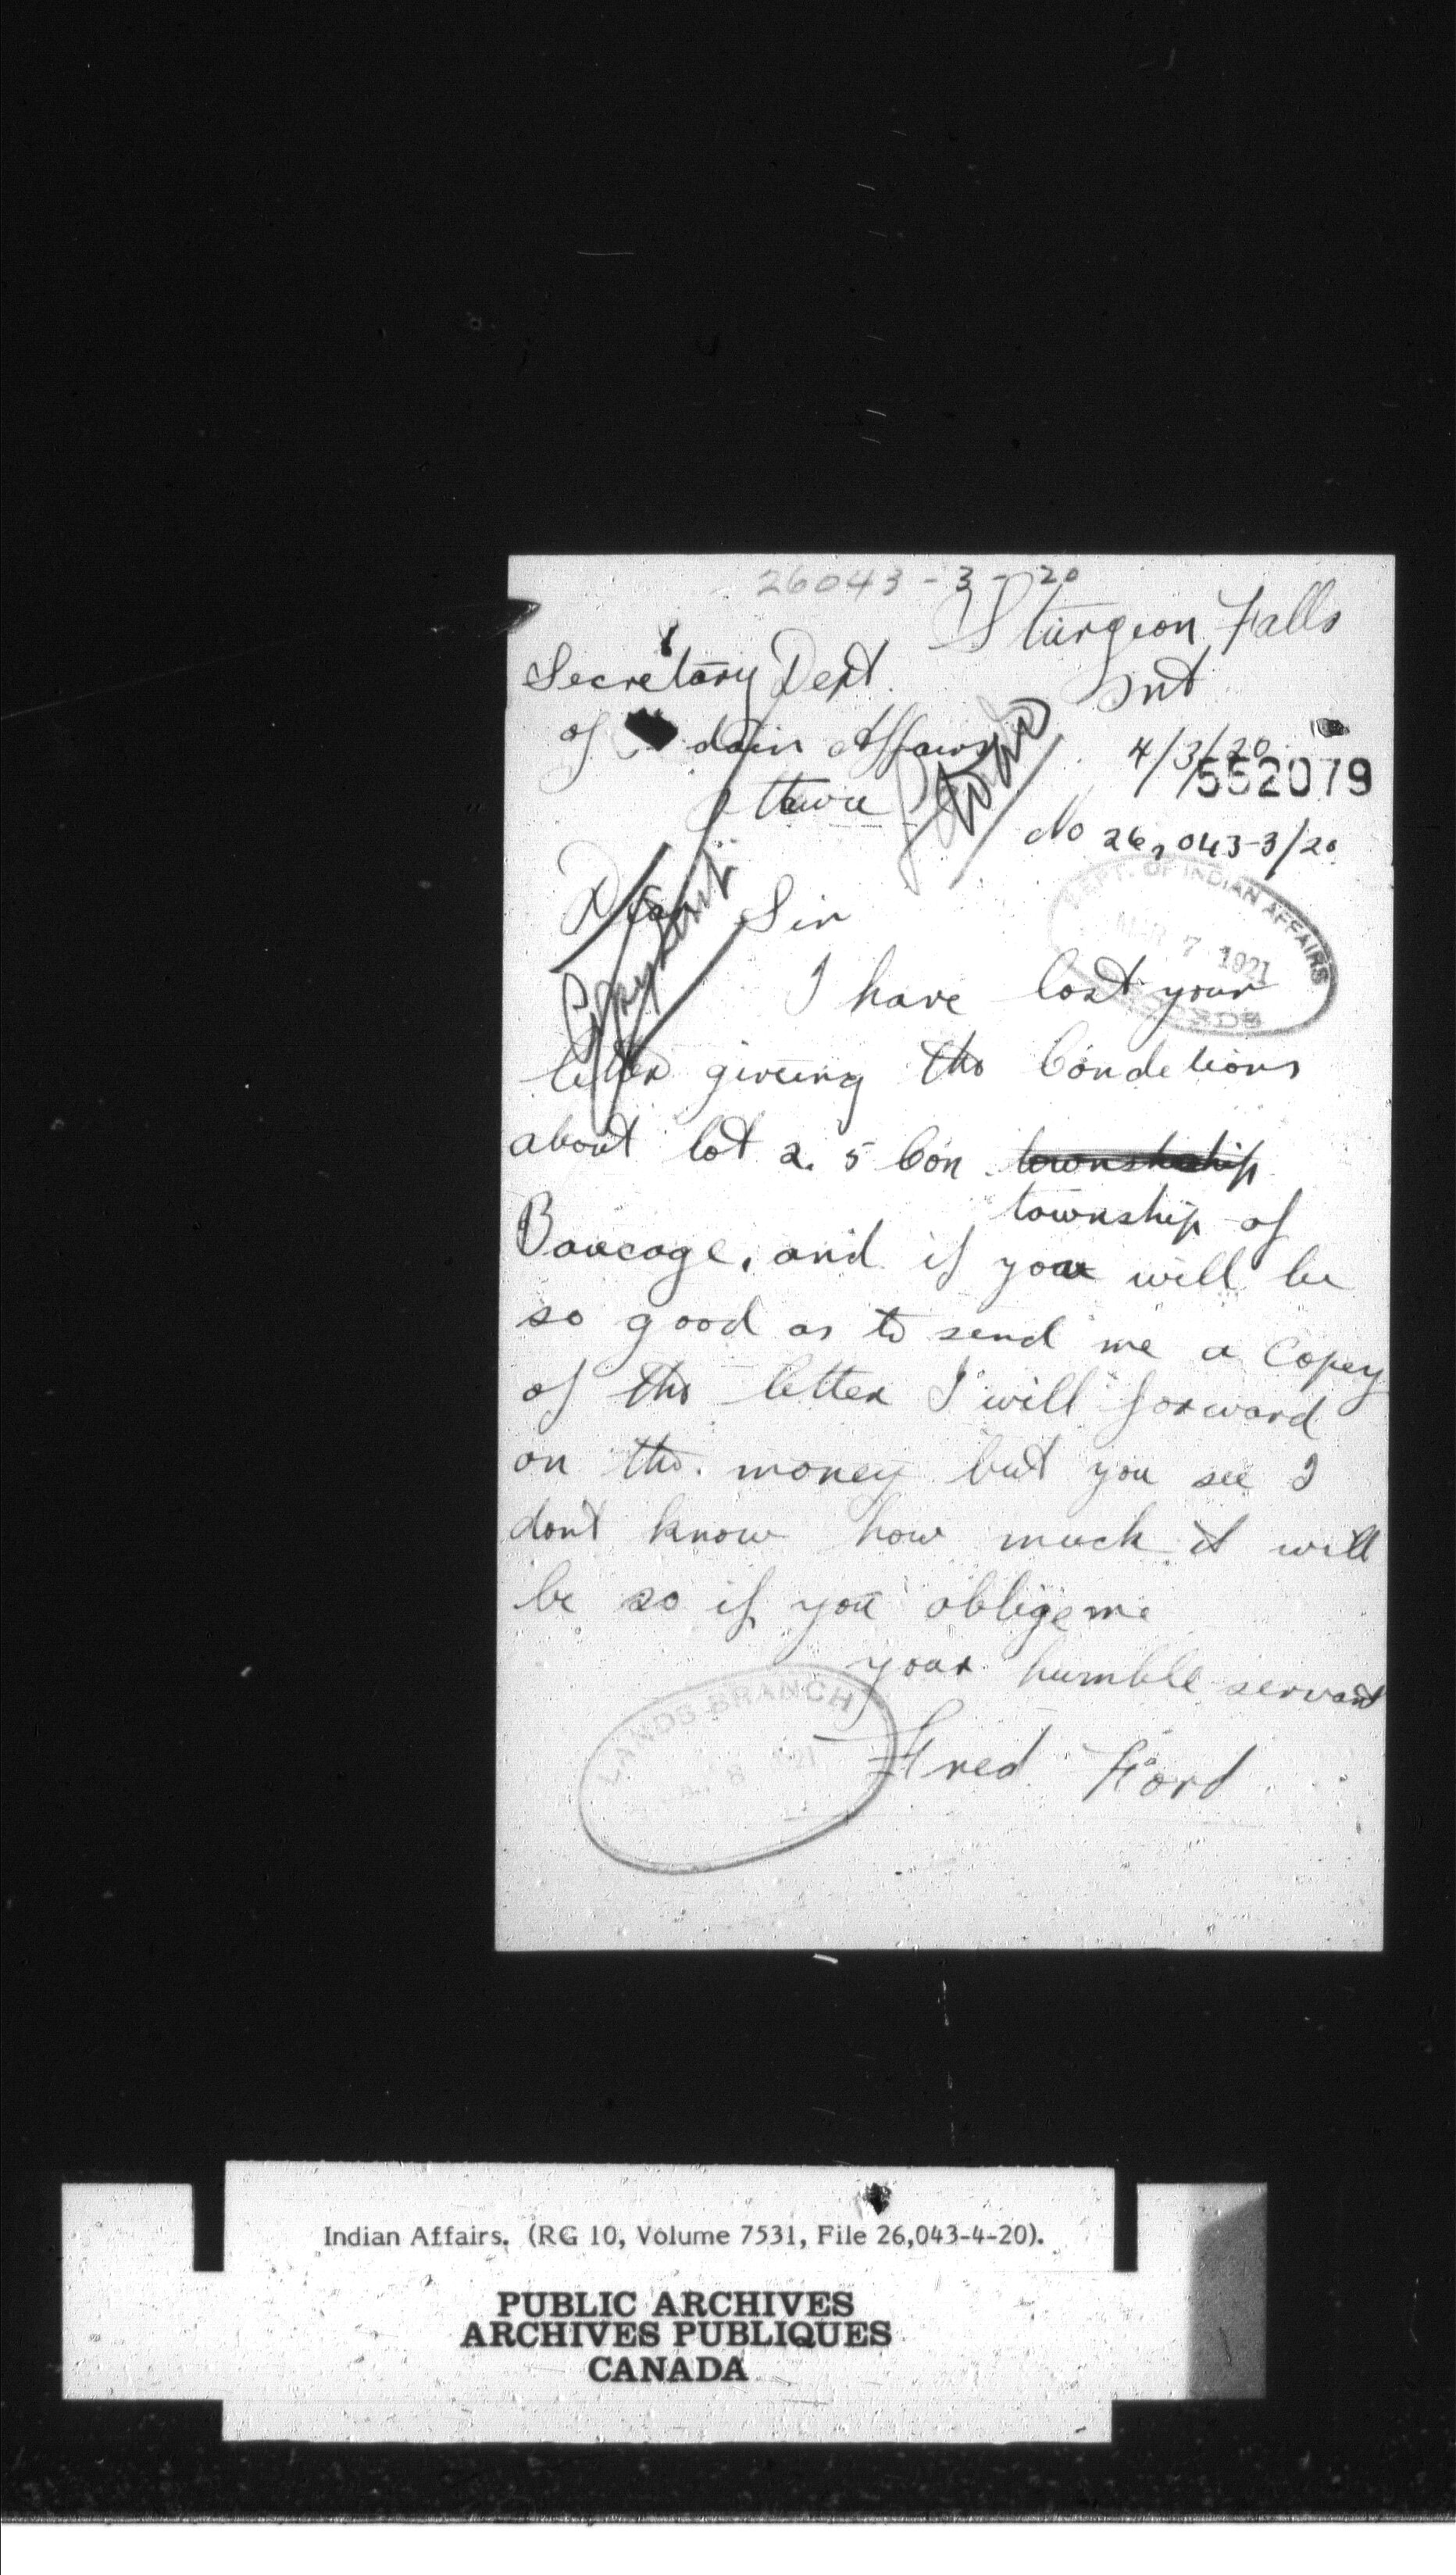 26043-3-20
Sturgeon Falls
Ont
Secretary Dept
of dain Affairs
Ottawa
4/3/20
552079
No 26,043-3/20
DEPT. OF INDIAN AFFAIRS
MAR 7 1921
RECORDS
Dear Sir
I have lost your
letter giveing the Condetions
about lot 2. 5 Con township
township of
Baucage. and if you will be
so good as to send me a Copey
of the letter I will forward
on the. money but you see I
dont know how much it will
be so if you oblige me
your humble servant
Fred Ford
LANDS BRANCH
8 21
Indian Affairs. (RG 10, Volume 7531, File 26,043-4-20).
PUBLIC ARCHIVES
ARCHIVES PUBLIQUES
CANADA